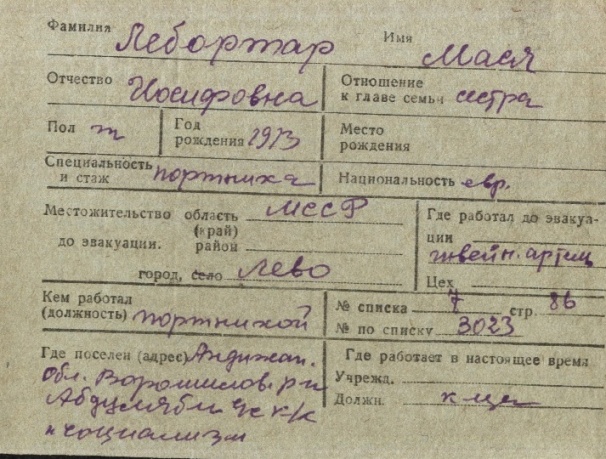 Фамилия Леборжар Имя Мася
Отчество Иосифовна Отношение к главе семьи сестра
Пол ж Год рождения 1913 Место рождения
Специальность и стаж портниха Национальность евр.
Местожительство область МССР Где работал до эвакуа-
(край) ции
до эвакуации. район швейн. артель
город, село Лево Цех
Кем работал (должность) портнихой № списка 7 стр. 86
№ по списку 3023
Где поселен (адрес) Андижан. Где работает в настоящее время
обл. Ворошилов. р-н Учрежд.
к/к Должн. к-ца
социализм